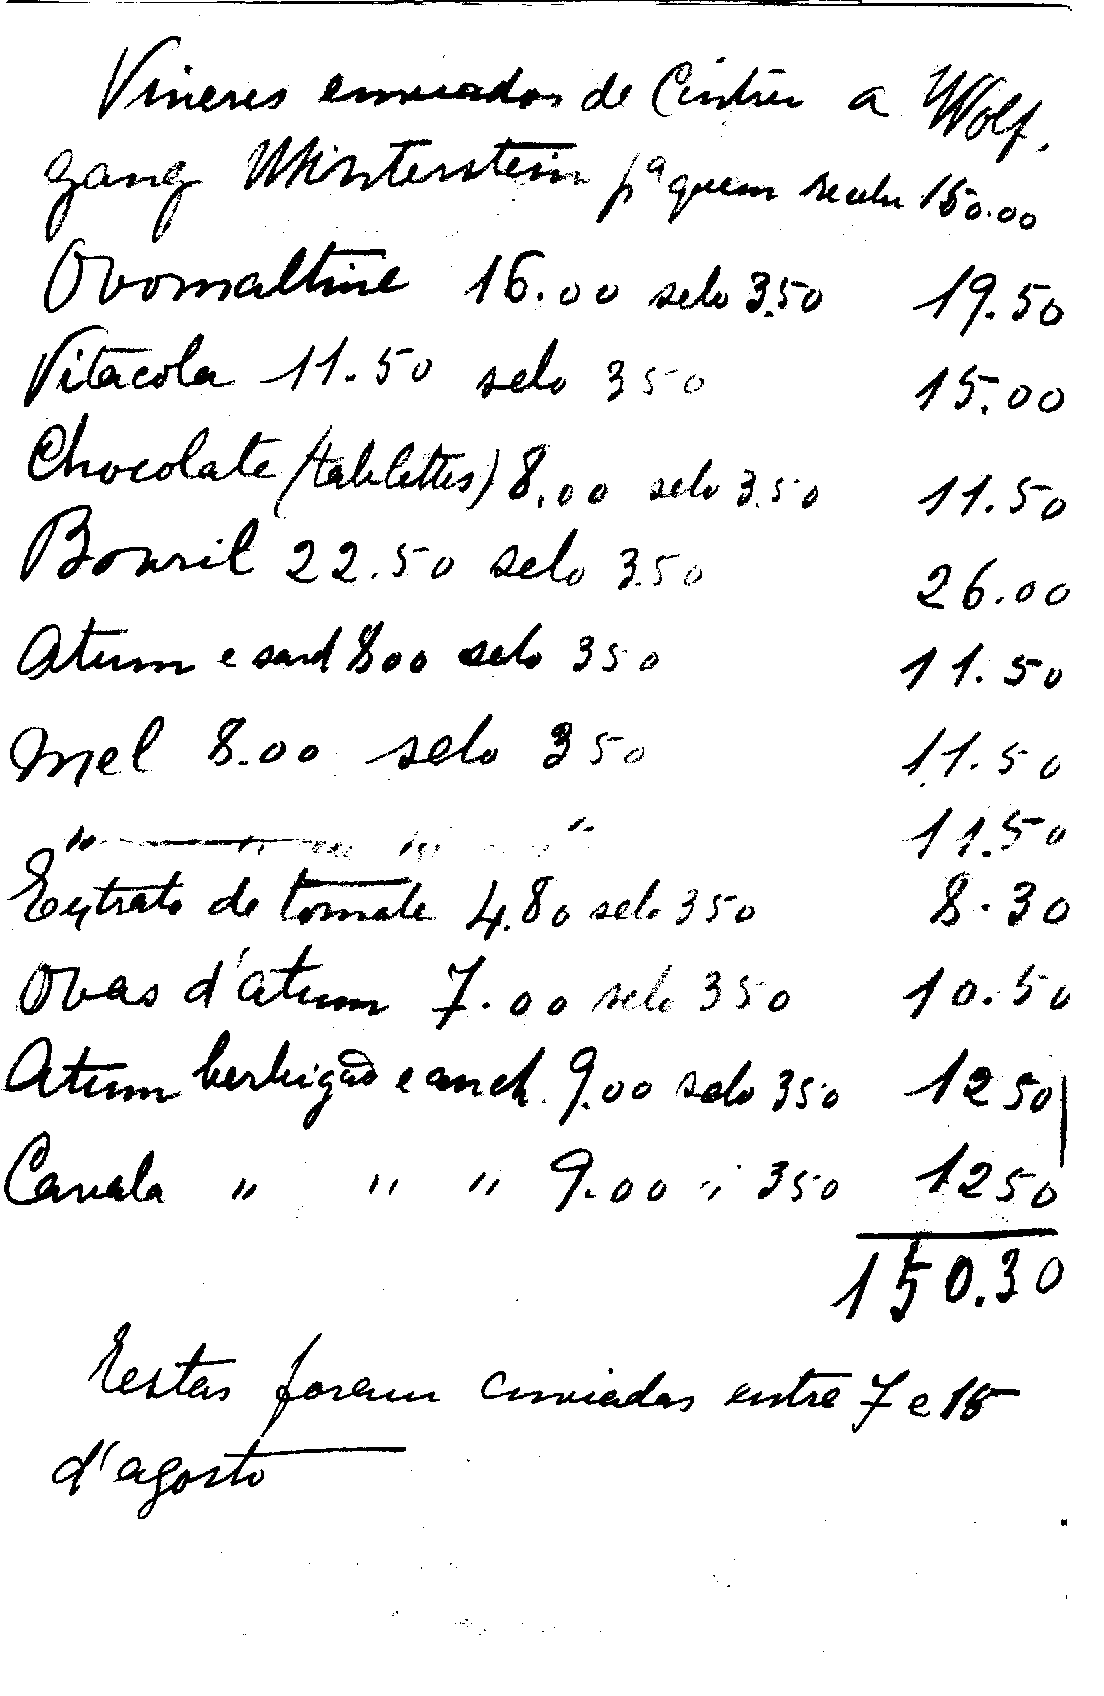 Viveres enviados de Cintra a Wolf.
gang Winterstein pª quem recebi 150.00
Ovomaltine 16.00 selo 3.50 19.50
Vitacola 11.50 selo 350 15.00
Chocolate (tablettes) 8.00 selo 3.50 11.50
Bouvril 22.50 selo 3.50 26.00
Atum e sard 800 selo 350 11.50
Mel 8.00 selo 350 11.50
" " " " 11.50
Extrato de tomate 4.80 selo 350 8.30
Ovas d'atum 7.00 selo 350 10.50
Atum berbigão e anch. 9.00 selo 350 1250
Cavala " " " 9.00 " 350 1250
150.30
Estas foram enviadas entre 7 e 15
d'agosto